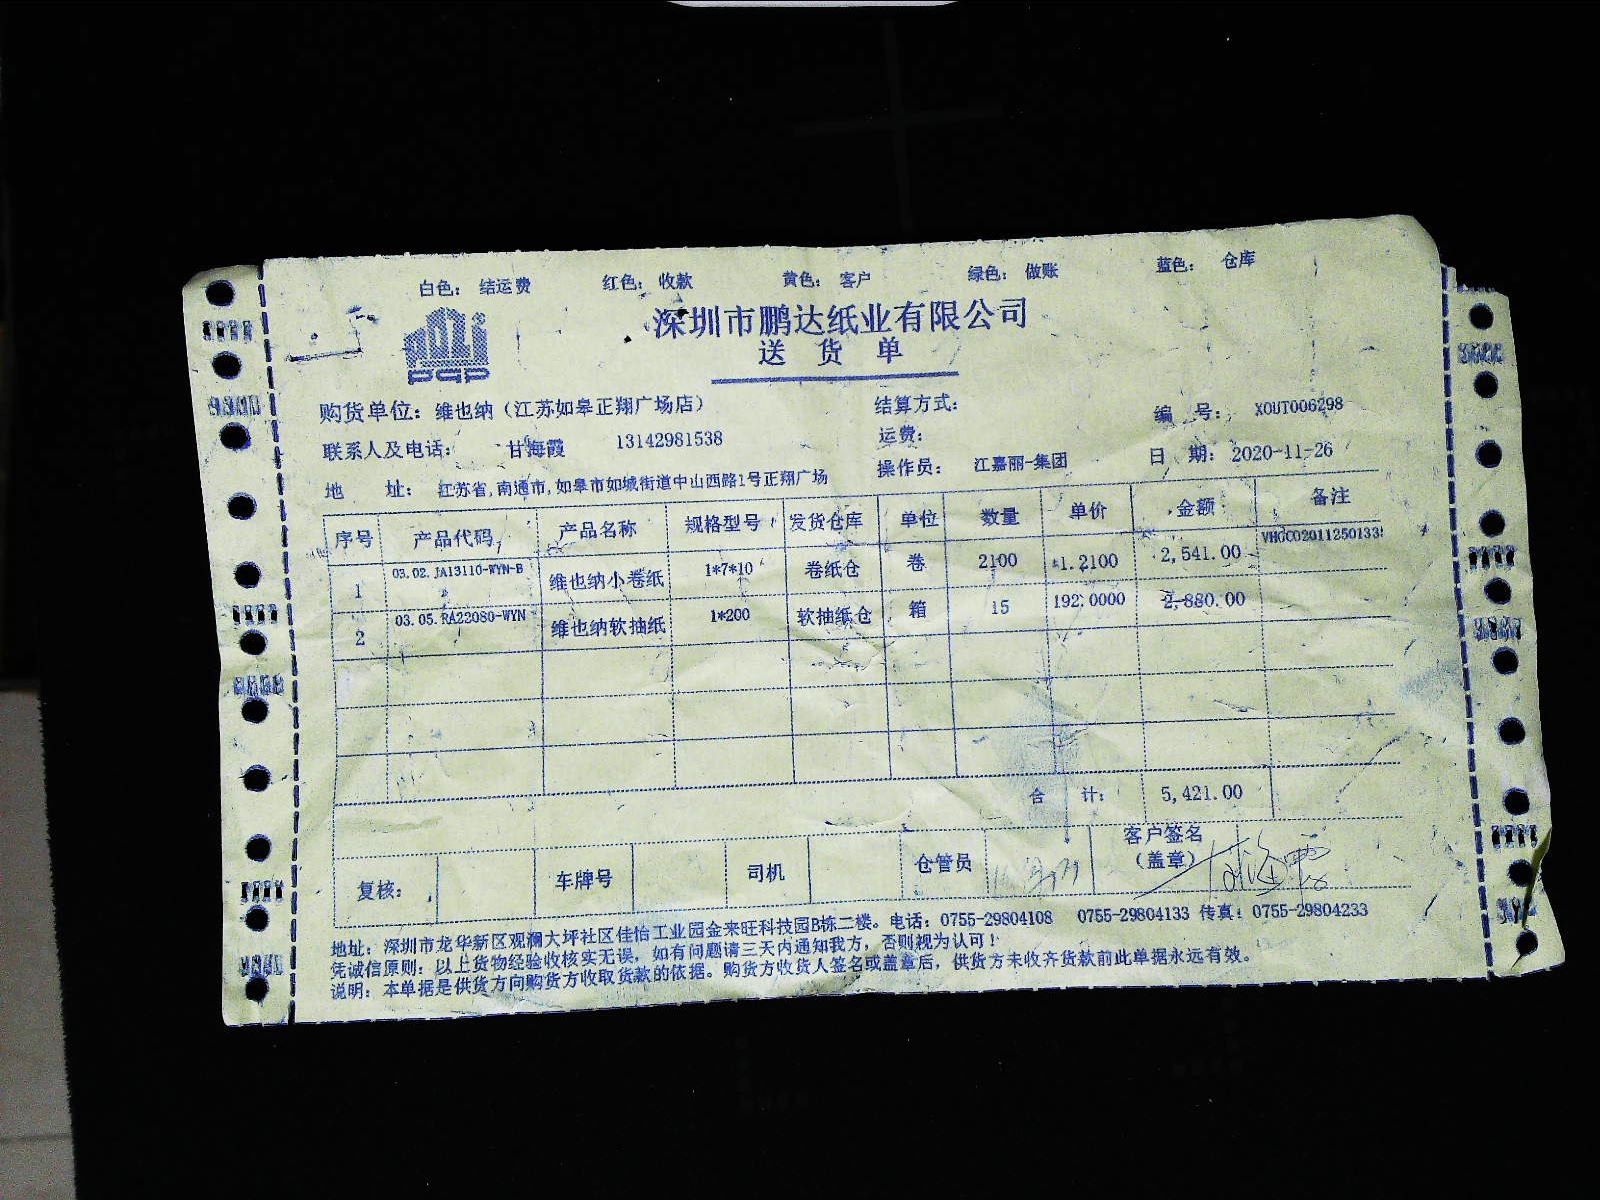 白色: 结运费 红色: 收款 黄色: 客户 绿色: 做账 蓝色: 仓库
深圳市鹏达纸业有限公司
pqp
送 货 单
购货单位: 维也纳（江苏如皋正翔广场店） 结算方式: 编 号: XOUT006298
联系人及电话: 甘海霞 13142981538 运费: 日 期: 2020-11-26
地 址: 江苏省,南通市,如皋市如城街道中山西路1号正翔广场 操作员: 江嘉丽-集团
序号 产品代码 产品名称 规格型号 发货仓库 单位 数量 单价 金额 备注
1 03.02.JA13110-WYN-B 维也纳小卷纸 1*7*10 卷纸仓 卷 2100 1.2100 2,541.00 VHGC0201125013
2 03.05.RA22080-WYN 维也纳软抽纸 1*200 软抽纸仓 箱 15 192.0000 2,880.00
合 计: 5,421.00
复核: 车牌号 司机 仓管员 客户签名
（盖章）
地址: 深圳市龙华新区观澜大坪社区佳怡工业园金来旺科技园B栋二楼。电话: 0755-29804108 0755-29804133 传真: 0755-29804233
凭诚信原则: 以上货物经验收核实无误, 如有问题请三天内通知我方, 否则视为认可!
说明: 本单据是供货方向购货方收取货款的依据。购货方收货人签名或盖章后, 供货方未收齐货款前此单据永远有效。